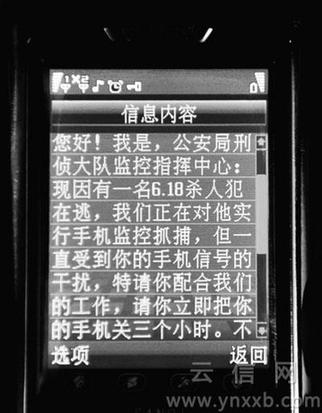 1 2
信息内容
您好！我是，公安局刑
侦大队监控指挥中心：
现因有一名6.18杀人犯
在逃，我们正在对他实
行手机监控抓捕，但一
直受到你的手机信号的
干扰，特请你配合我们
的工作，请你立即把你
的手机关三个小时。不
选项 返回
云信网
www.ynxxb.com